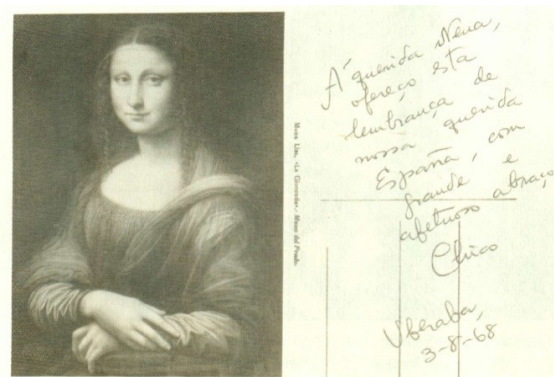 Mona Lisa, «La Gioconda».-Museo del Prado.
À querida Nena,
ofereço esta
lembrança de
nossa querida
España, com
grande e
afetuoso abraço
Chico
Uberaba,
3-8-68